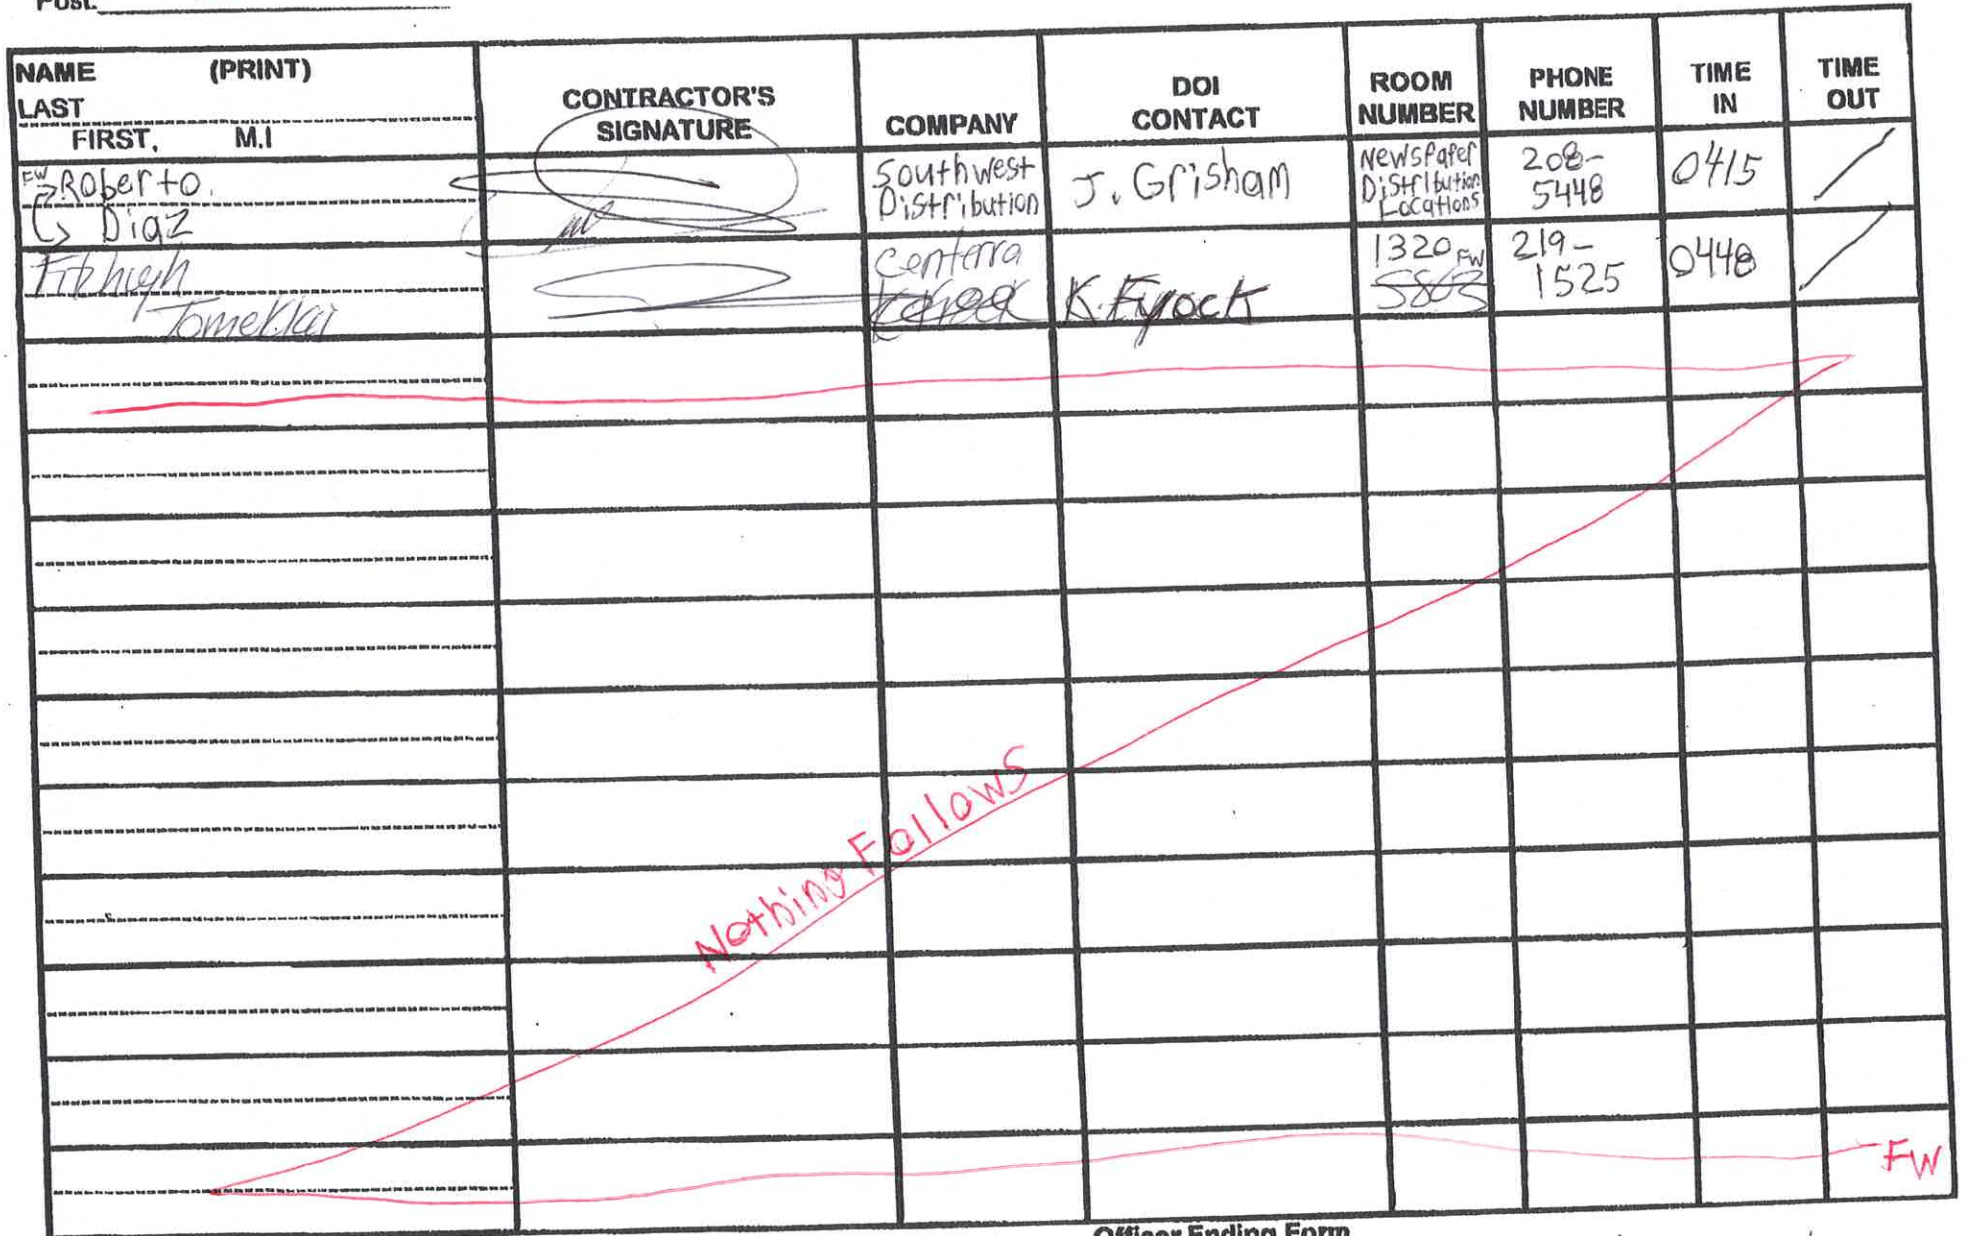 Post:
NAME (PRINT)
LAST
FIRST, M.I
CONTRACTOR'S
SIGNATURE
COMPANY
DOI
CONTACT
ROOM
NUMBER
PHONE
NUMBER
TIME
IN
TIME
OUT
FW Roberto.
Diaz
Southwest
Distribution
J. Grisham
Newspaper
Distribution
Locations
208-
5448
0415
Fitzhugh
Tomekkai
Centerra
K. Fyock
1320 FW
5863
219-
1525
0448
Nothing Follows
FW
Officer Ending Form